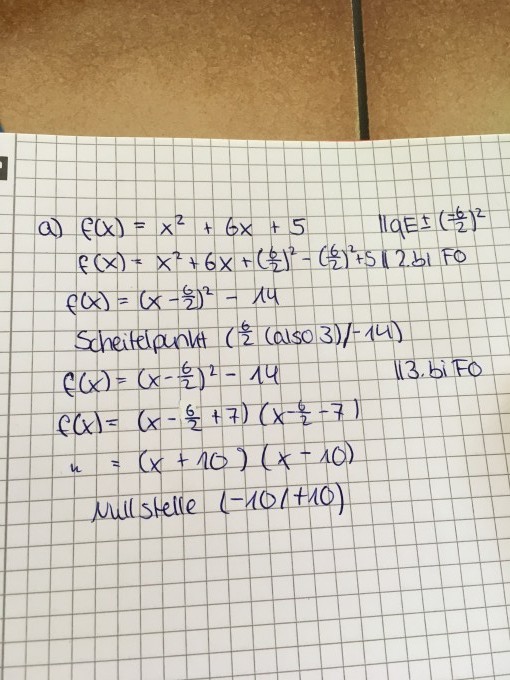 a) f(x) = x² + 6x + 5 ||qE ± (-6/2)²
f(x) = x² + 6x + (6/2)² - (6/2)² + 5 || 2. bi FO
f(x) = (x - 6/2)² - 14
Scheitelpunkt (6/2 (also 3)/-14)
f(x) = (x - 6/2)² - 14 ||3. bi FO
f(x) = (x - 6/2 + 7) (x - 6/2 - 7)
" = (x + 10) (x - 10)
Nullstelle (-10/+10)